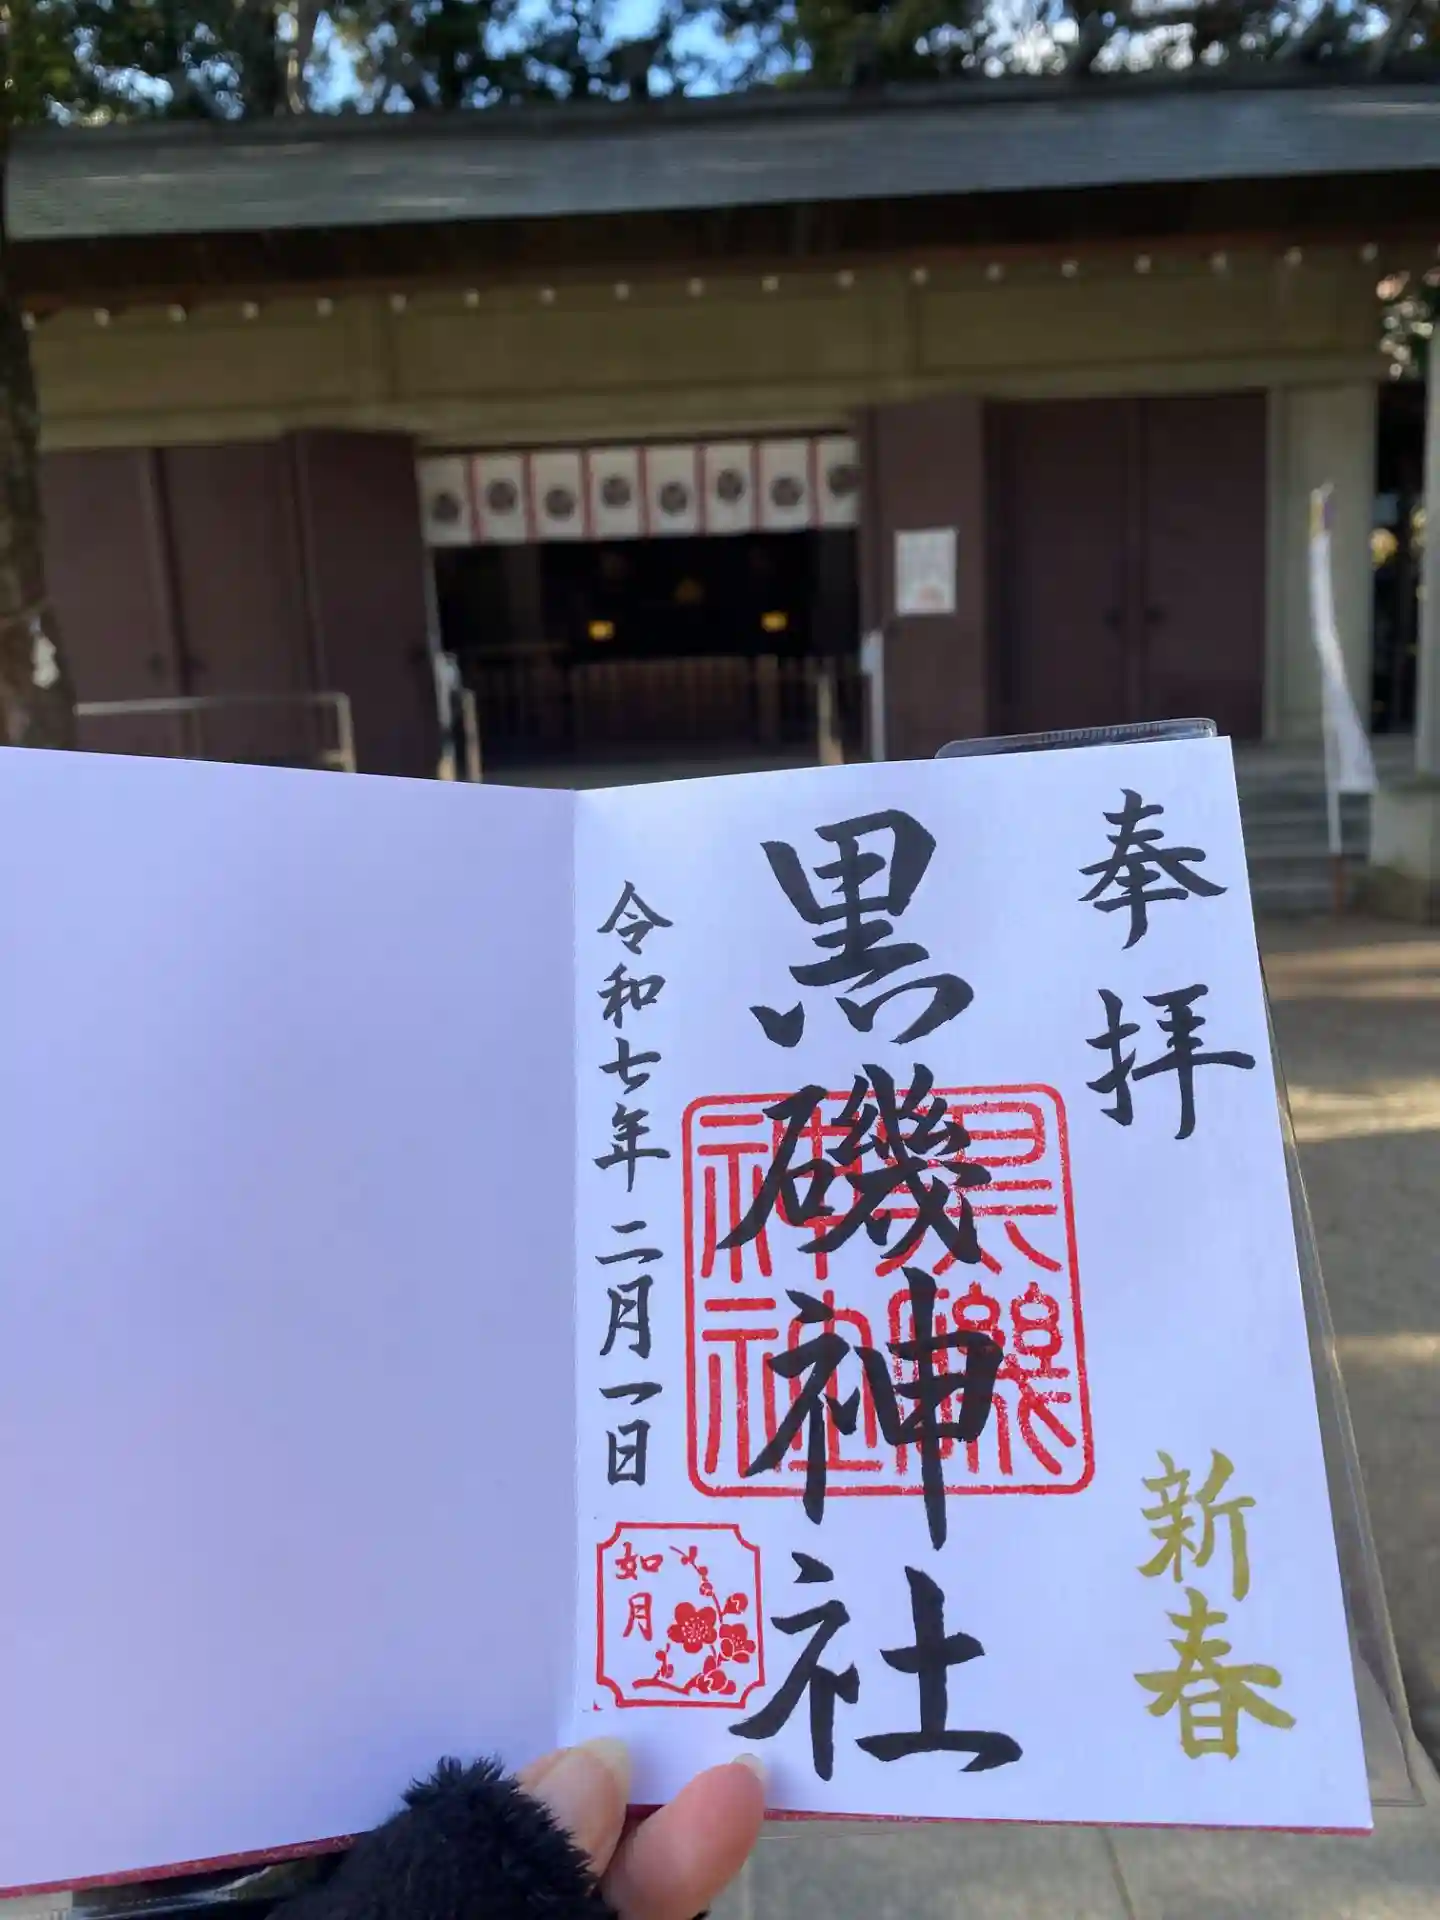 奉拝
新春
黒磯神社
黒磯神社
令和七年二月一日
如月